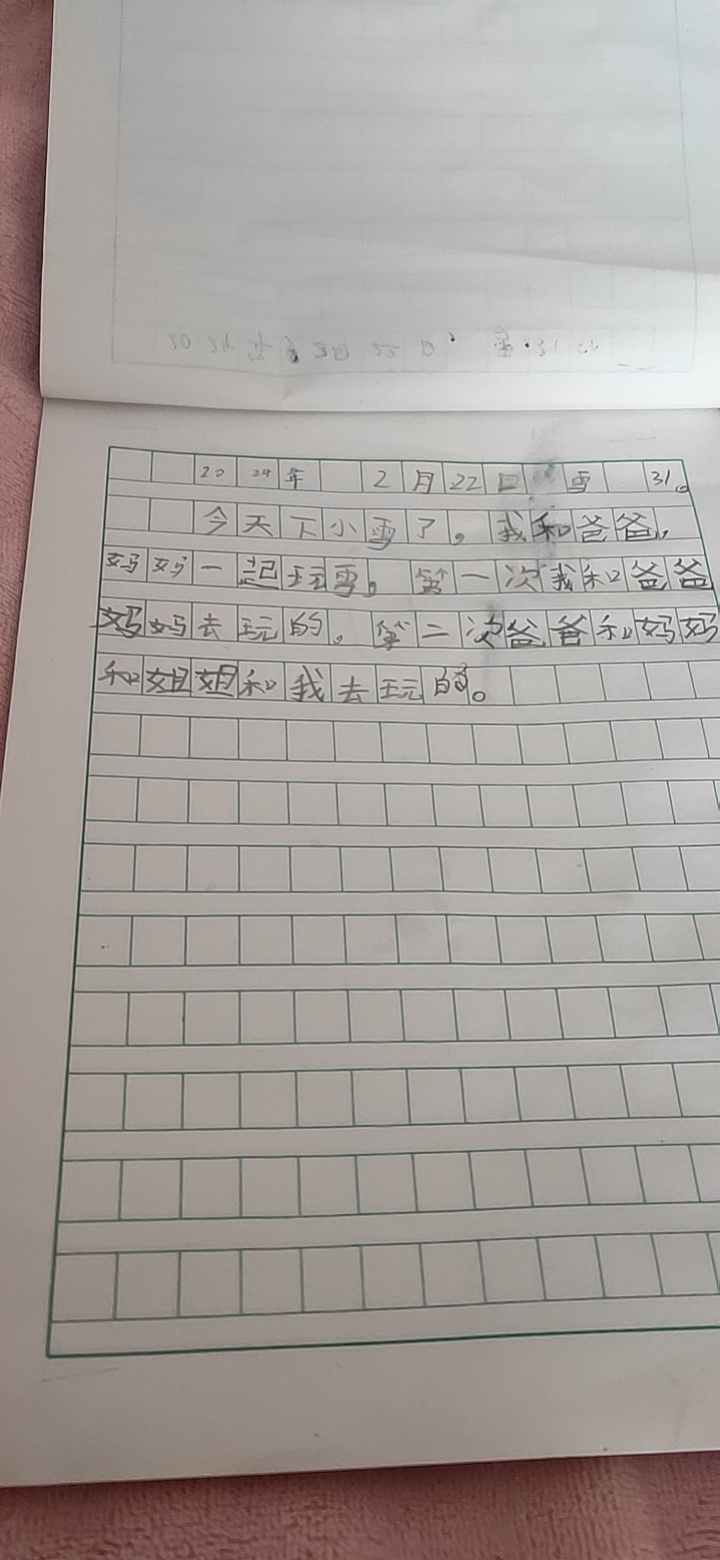 2024年 2月22日 雪 31。
今天下小雪了。我和爸爸,
妈妈一起玩雪。第一次我和爸爸
妈妈去玩的。第二次爸爸和妈妈
和姐姐和我去玩的。